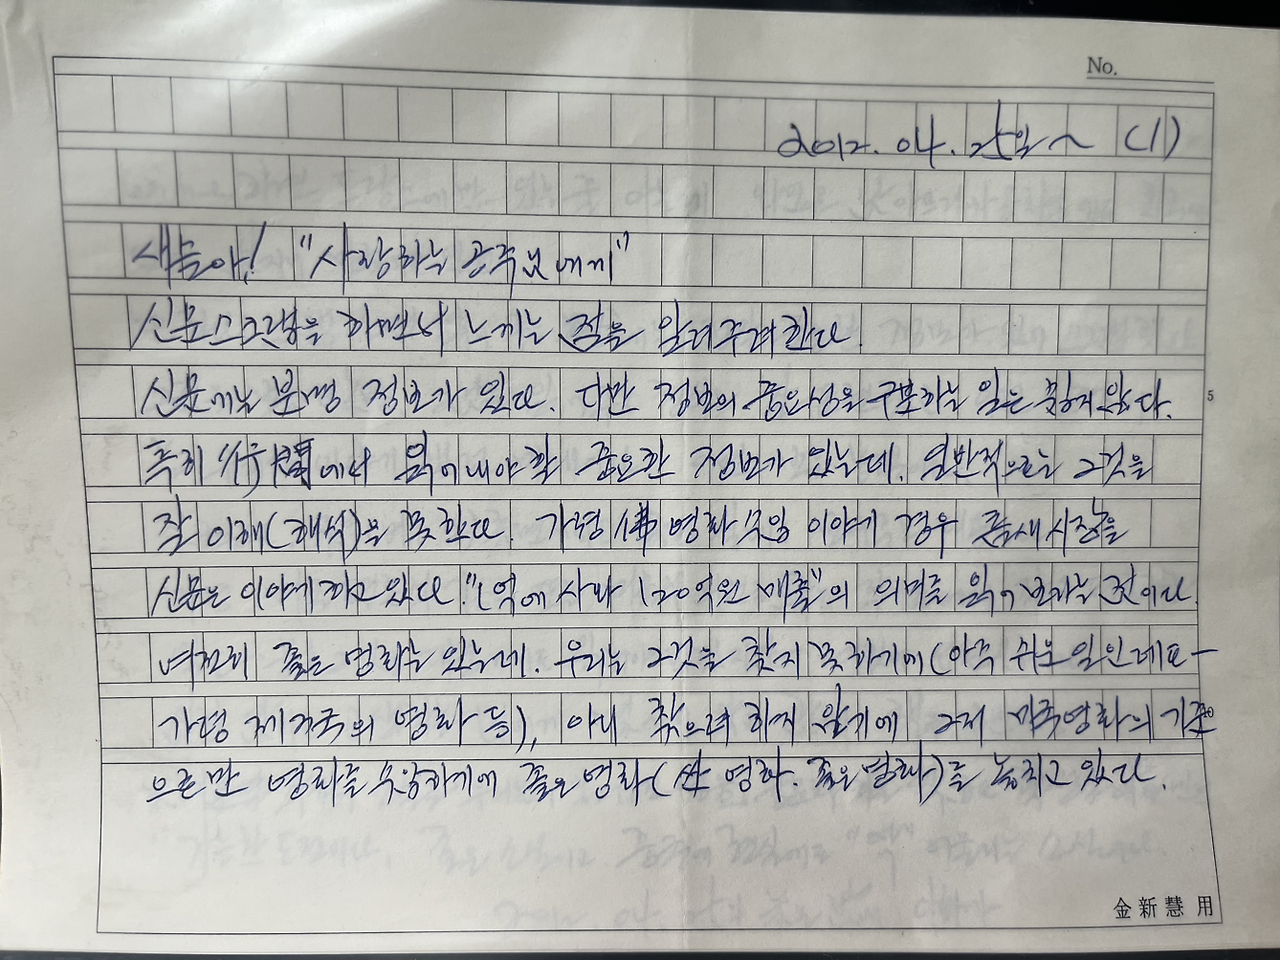 No.
2012. 04. 25일 ~ (1)
새솔아! "사랑하는 공주님에게"
신문스크랩을 하면서 느끼는 점을 알려주려한다.
신문에는 분명 정보가 있다. 다만 정보의 중요성을 구분하는 일은 쉽지 않다.
특히 行間에서 읽어내야 할 중요한 정보가 있는데. 일반적으로는 그것을
잘 이해(해석)을 못한다. 가령 佛영화 수입 이야기 경우 틈새시장을
신문은 이야기하고 있다. "1억에 사와 120억원 매출"의 의미를 읽어보라는 것이다.
여전히 좋은 영화는 있는데. 우리는 그것을 찾지 못하기에(아주 쉬운 일인데도-
가령 제3국의 영화 등), 아니 찾으려 하지 않기에 그저 미국영화의 기준
으로만 영화를 수입하기에 좋은영화( 영화. 좋은영화)를 놓치고 있다.
5
金新慧用